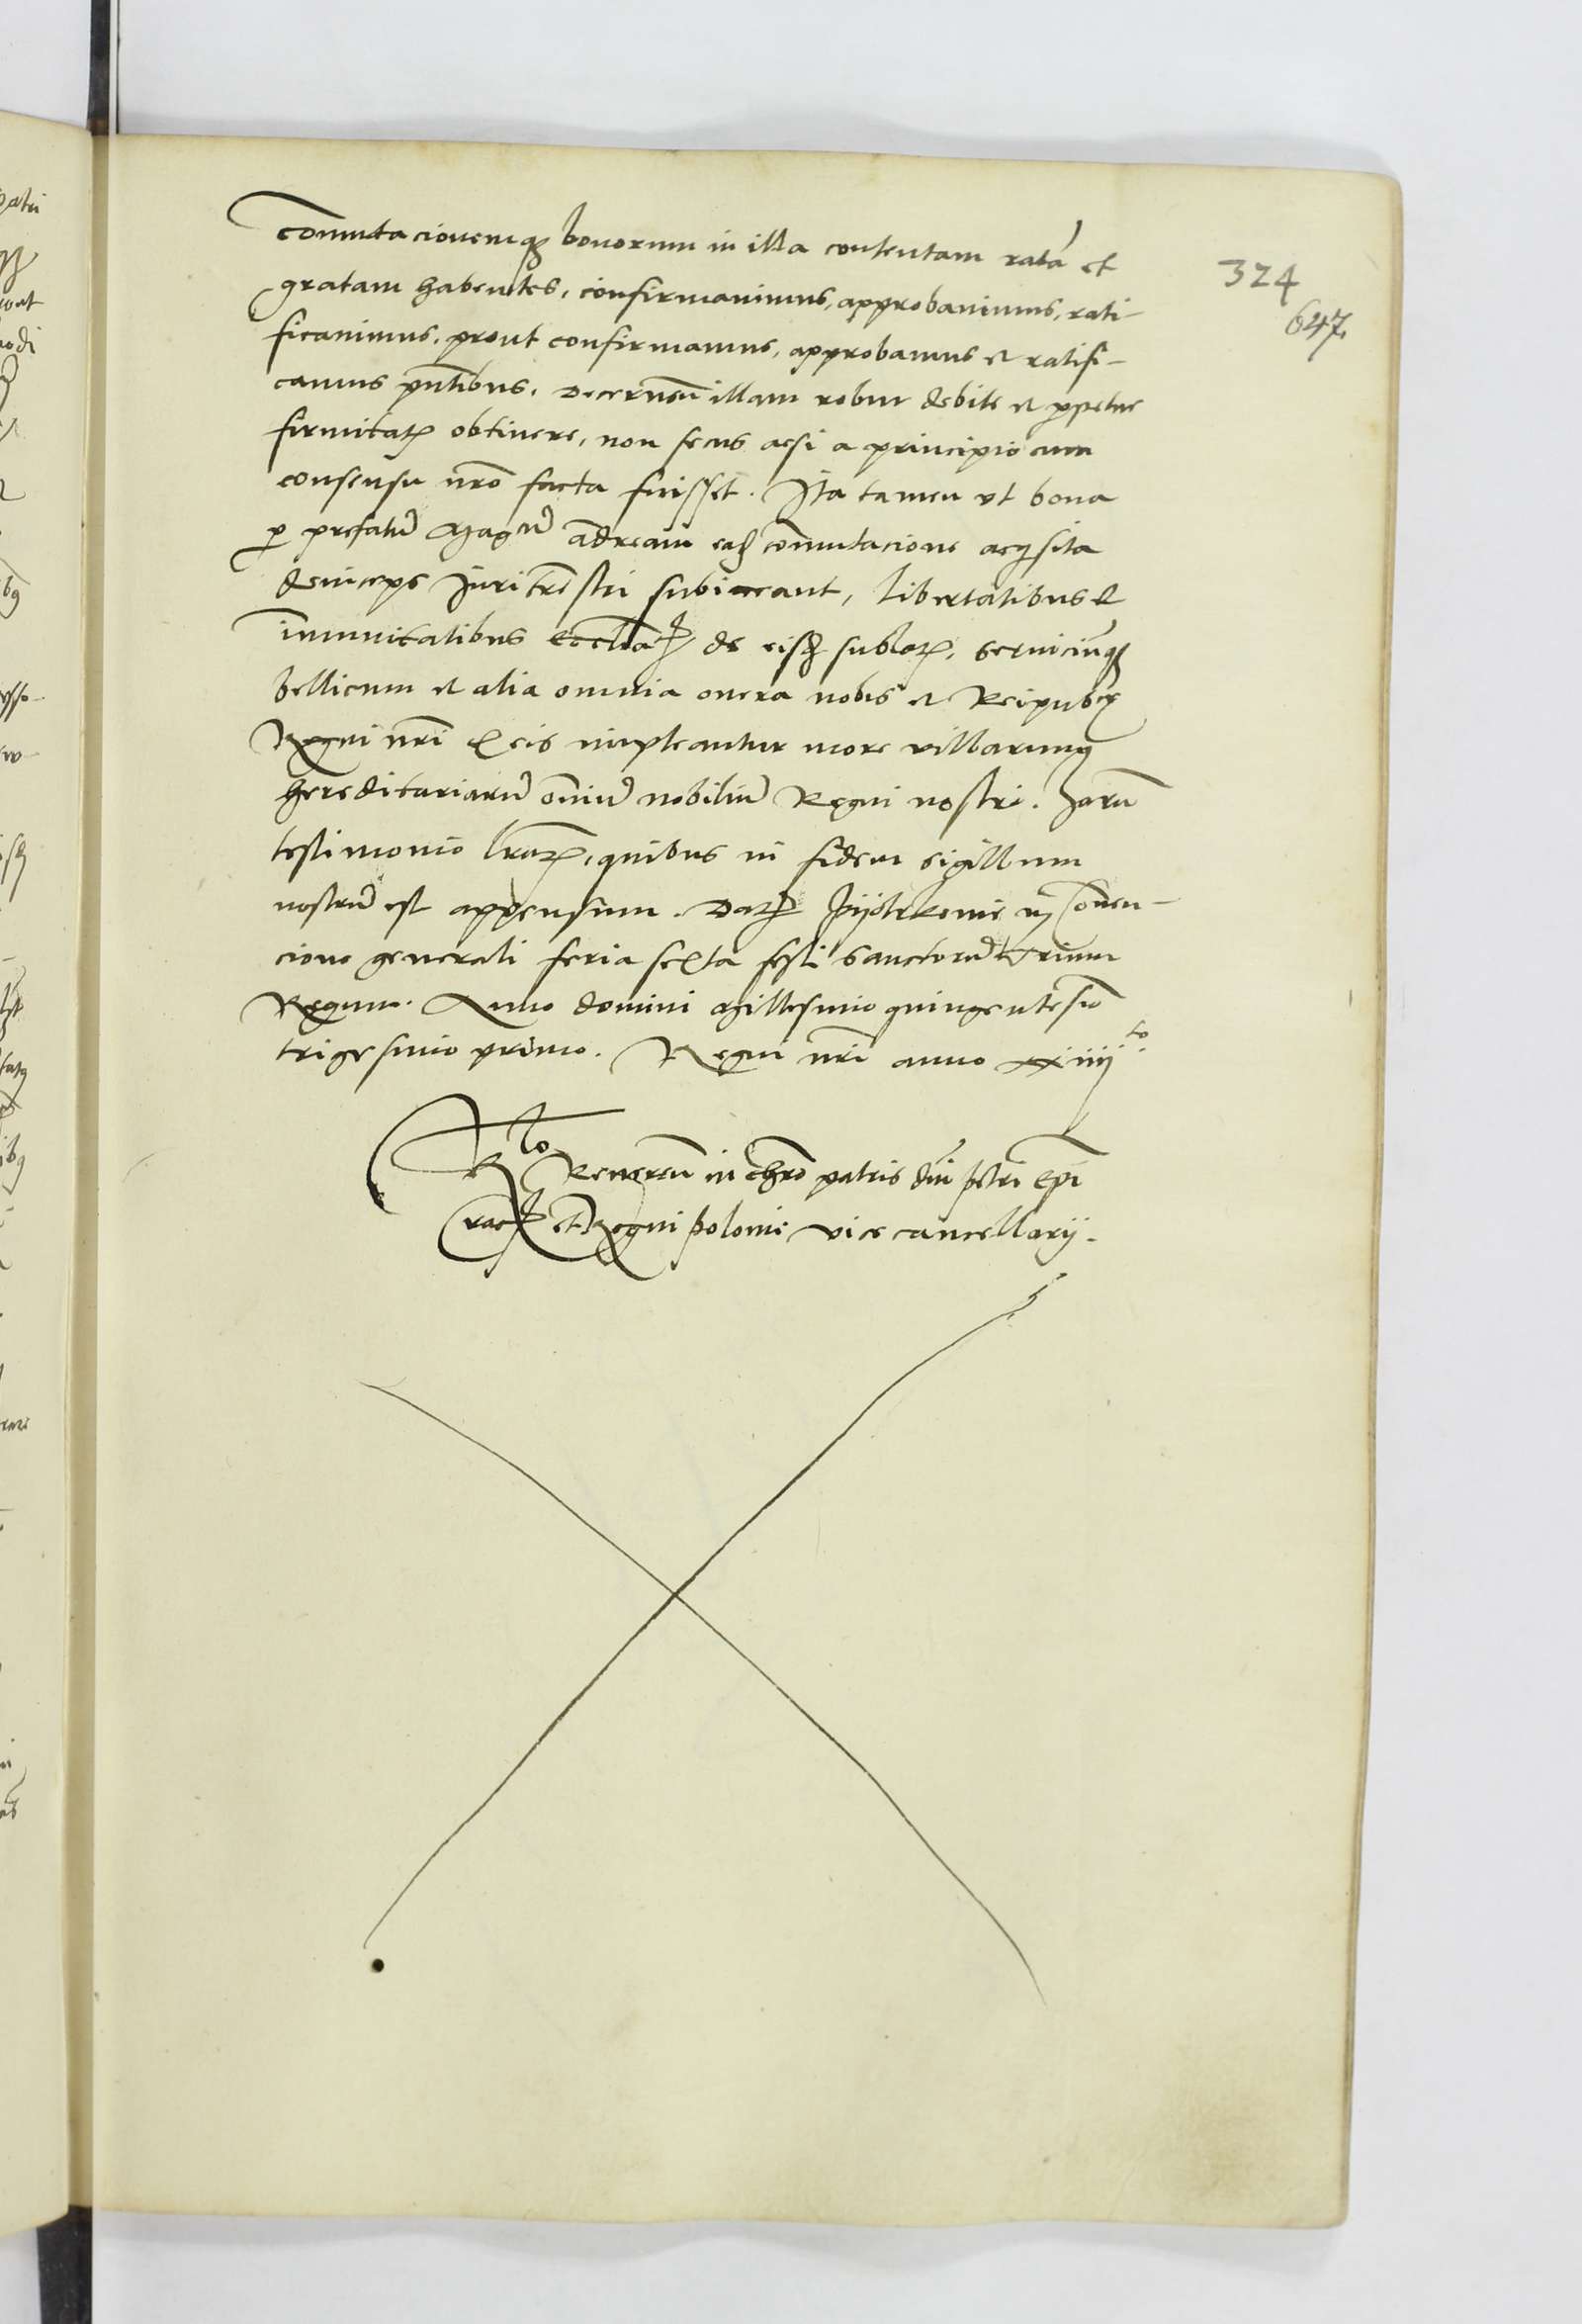 324
647.
comutacionemq bonorum in illa contentam ratã et
gratam habentes, confirmavimus, approbavimus, rati-
ficavimus, prout confirmamus, approbamus et ratifi-
camus pntibus. Decernen illam robur debite et ppetue
firmitatis obtinere, non secus acsi a principio cum
consensu nro facta fuisset. Ita tamen ut bona
p prefatu Mag cu Andream ead comutacione acqsita
deinceps Juri trestri subiceant, libertatibus et
imunitatibus ecclia de eisd sublatis, serviciumq
bellicum et alia omnia onera nobis et Reipub
Regni nri ex eis impleantur more villarum
hereditariaru omniu nobiliu Regni nostri. Haru
testimonio lraru, quibus in fidem sigillum
nostru est appensum. Dat Pijotrkovie in Conven-
cione generali feria sexta festi sanctoru trium
Regum. Anno domini Millesimo quingentesio
trigesimo primo. Regni nri anno xxiiij to.
R lo Reveren in chro patris dni Petri Epi
crac et Regni Polonie vicecancellarij.